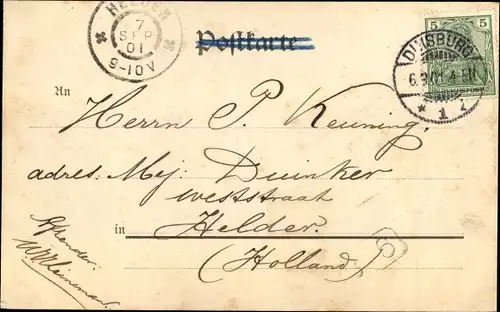 HELDER
7
SEP
01
9-10V
Postkarte
5 5
DUISBURG
6.9.01.4-5N.
* 1 *
An
Herrn P. Keuning,
adres: Mej Duinker
weststraat
in Helder.
(Holland)
Afzender: